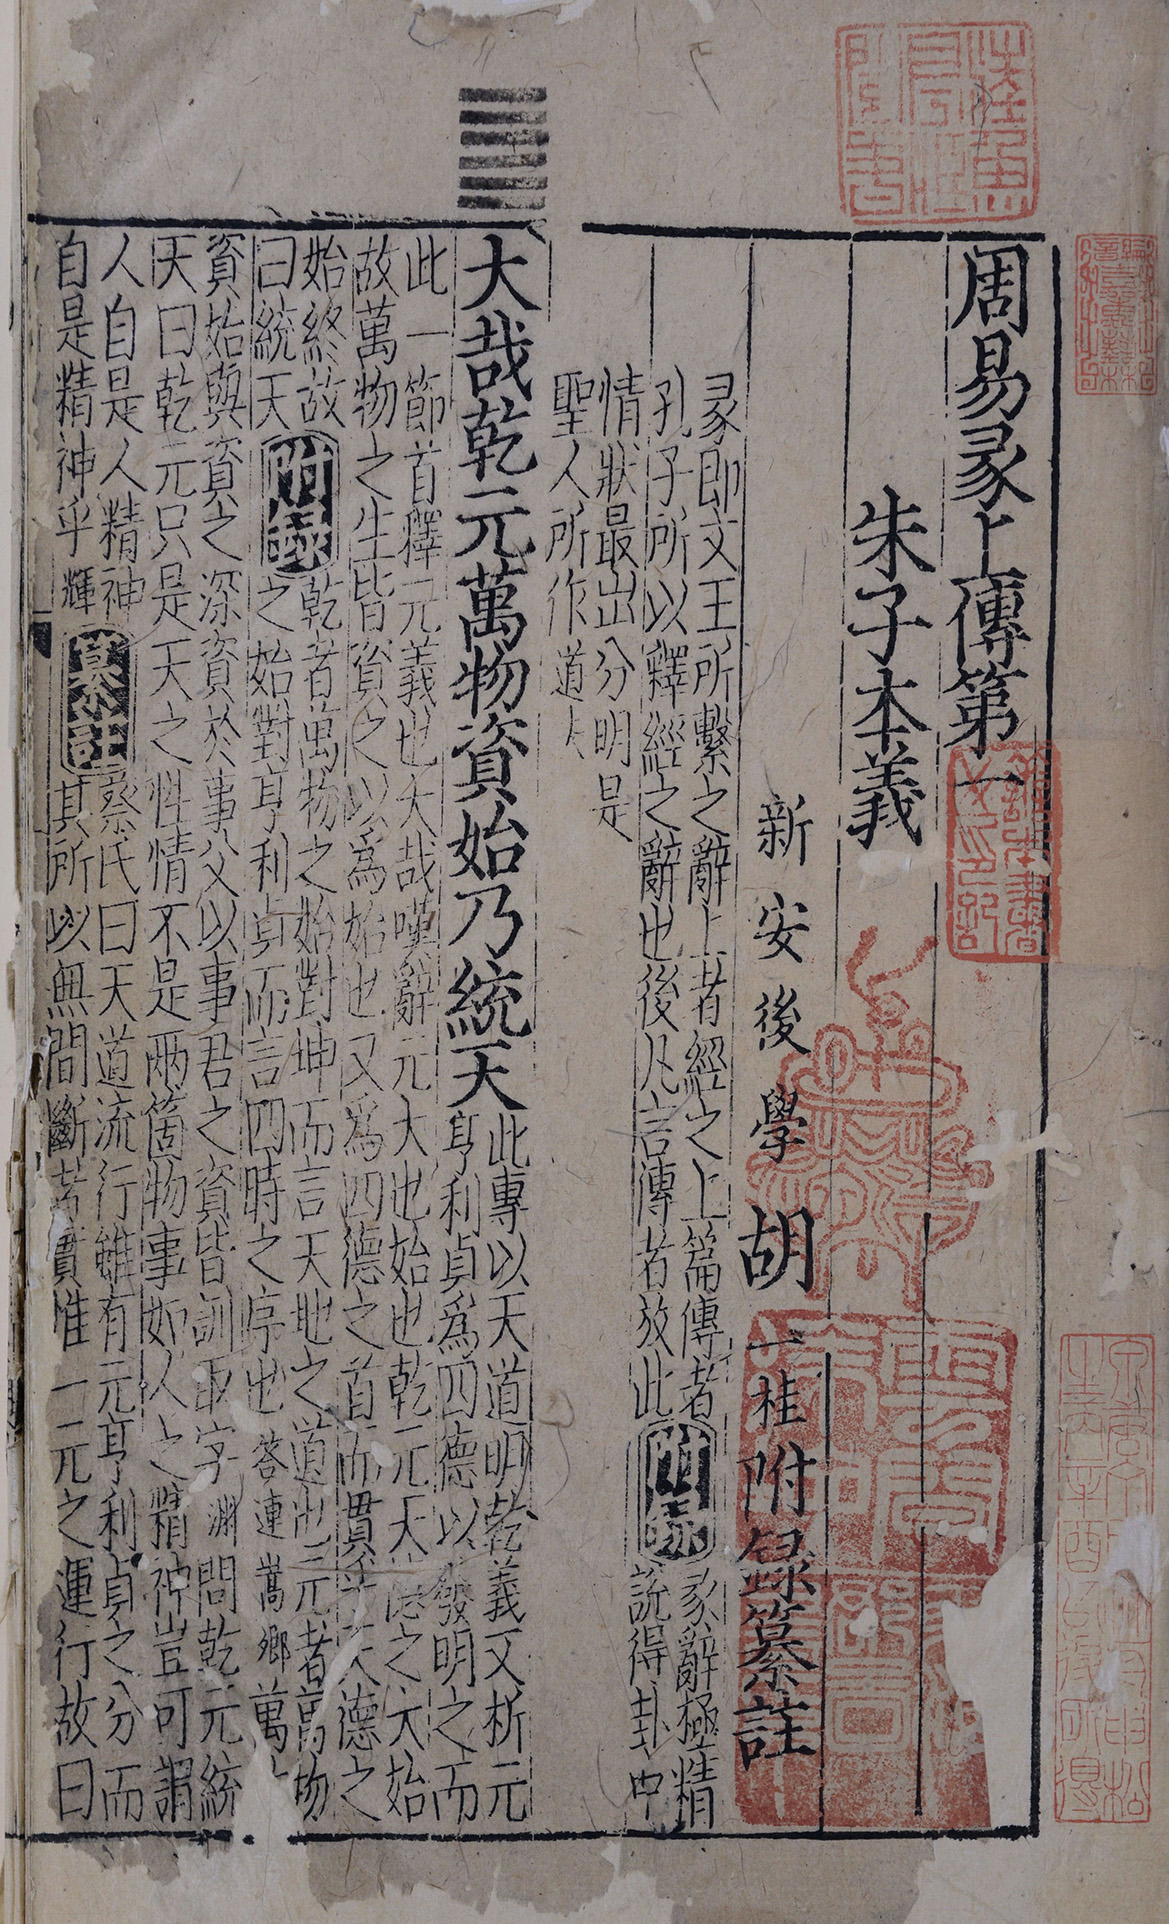 周易彖上傳第一
朱子本義
新安後學胡一桂附録纂註
彖即文王所繫之辭上者經之上篇傳者
孔子所以釋經之辭也後凡言傳者放此附録彖辭極精
說得卦中
情狀最出分明是
聖人所作道夫
大哉乾元萬物資始乃統天此專以天道明乾義又析元
亨利貞爲四德以發明之而
此一節首釋元義也大哉嘆辭元大也始也乾元天德之大始
故萬物之生皆資之以爲始也又爲四德之首而貫乎天德之
始終故
曰統天附録乾者萬物之始對坤而言天地之道也元者萬物
之始對亨利貞而言四時之序也答連嵩卿萬物
資始與資之深資於事父以事君之資皆訓取字淵問乾元統
天曰乾元只是天之性情不是兩箇物事如人之精神豈可謂
人自是人精神
自是精神乎輝纂註蔡氏曰天道流行雖有元亨利貞之分而
其所以無間斷者實惟一元之運行故曰